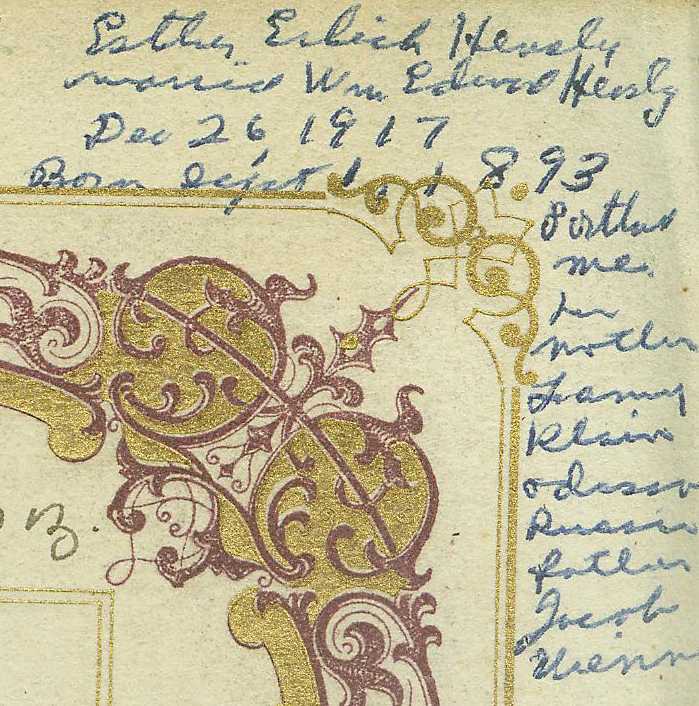 Esther Erlich Hensly
married Wm Edward Hensly
Dec 26, 1917
Born Sept 1, 1893
Portland
me.
her
mother
Fanny
Klein
odessa
Russia
father
Jacob
Vienn
3.